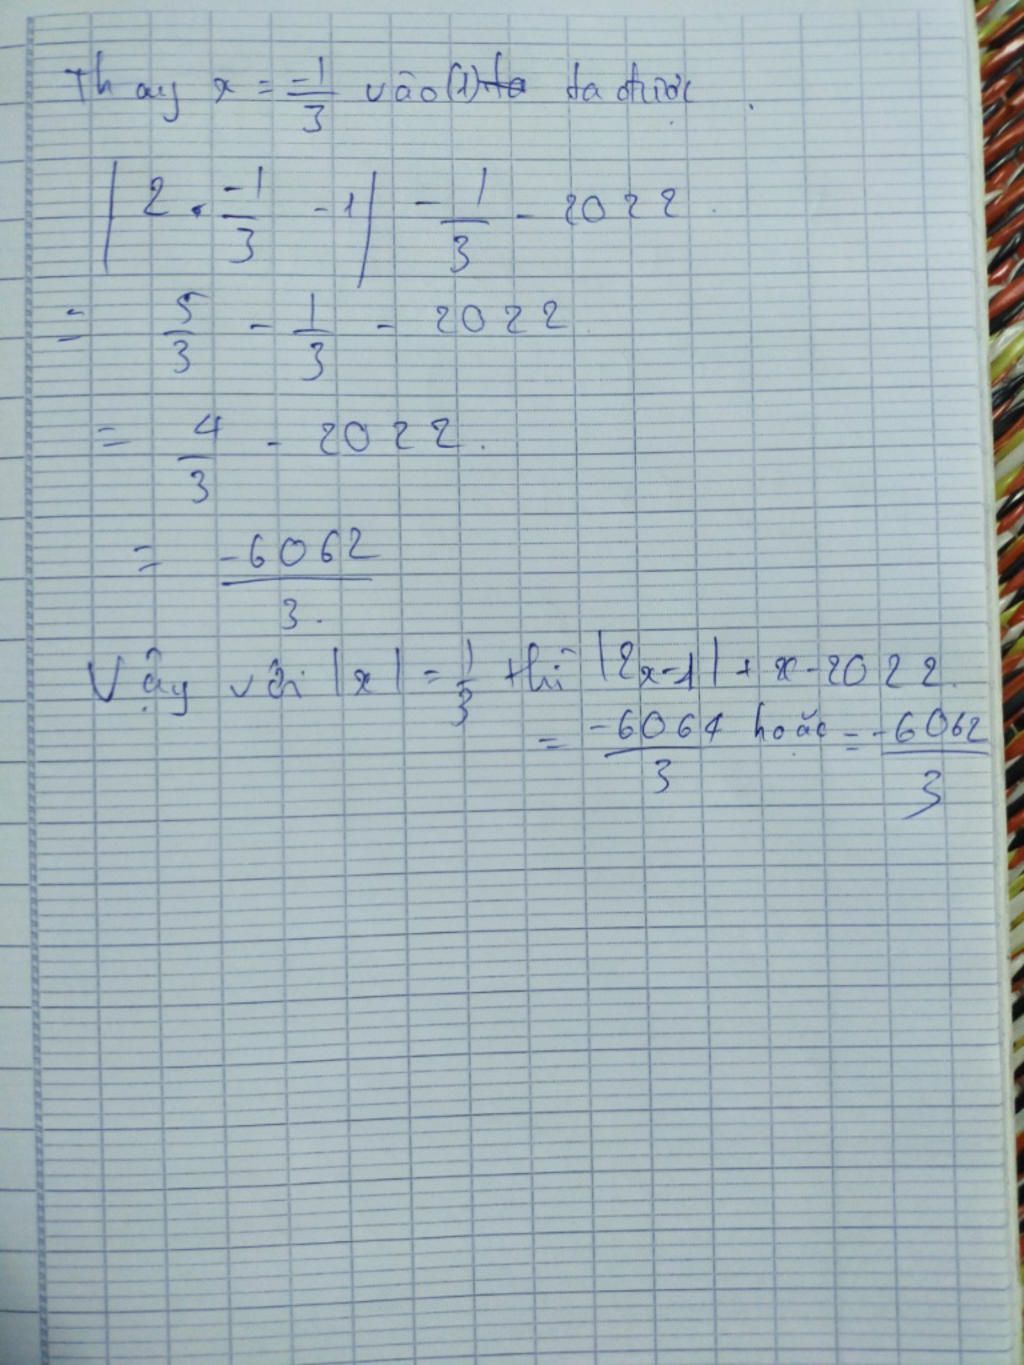 Thay x = -1/3 vào (1) ta ta được
|2 . -1/3 - 1| - 1/3 - 2022.
= 5/3 - 1/3 - 2022
= 4/3 - 2022.
= -6062/3.
Vậy với |x| = 1/3 thì |2x-1| + x - 2022.
= -6064/3 hoặc = -6062/3